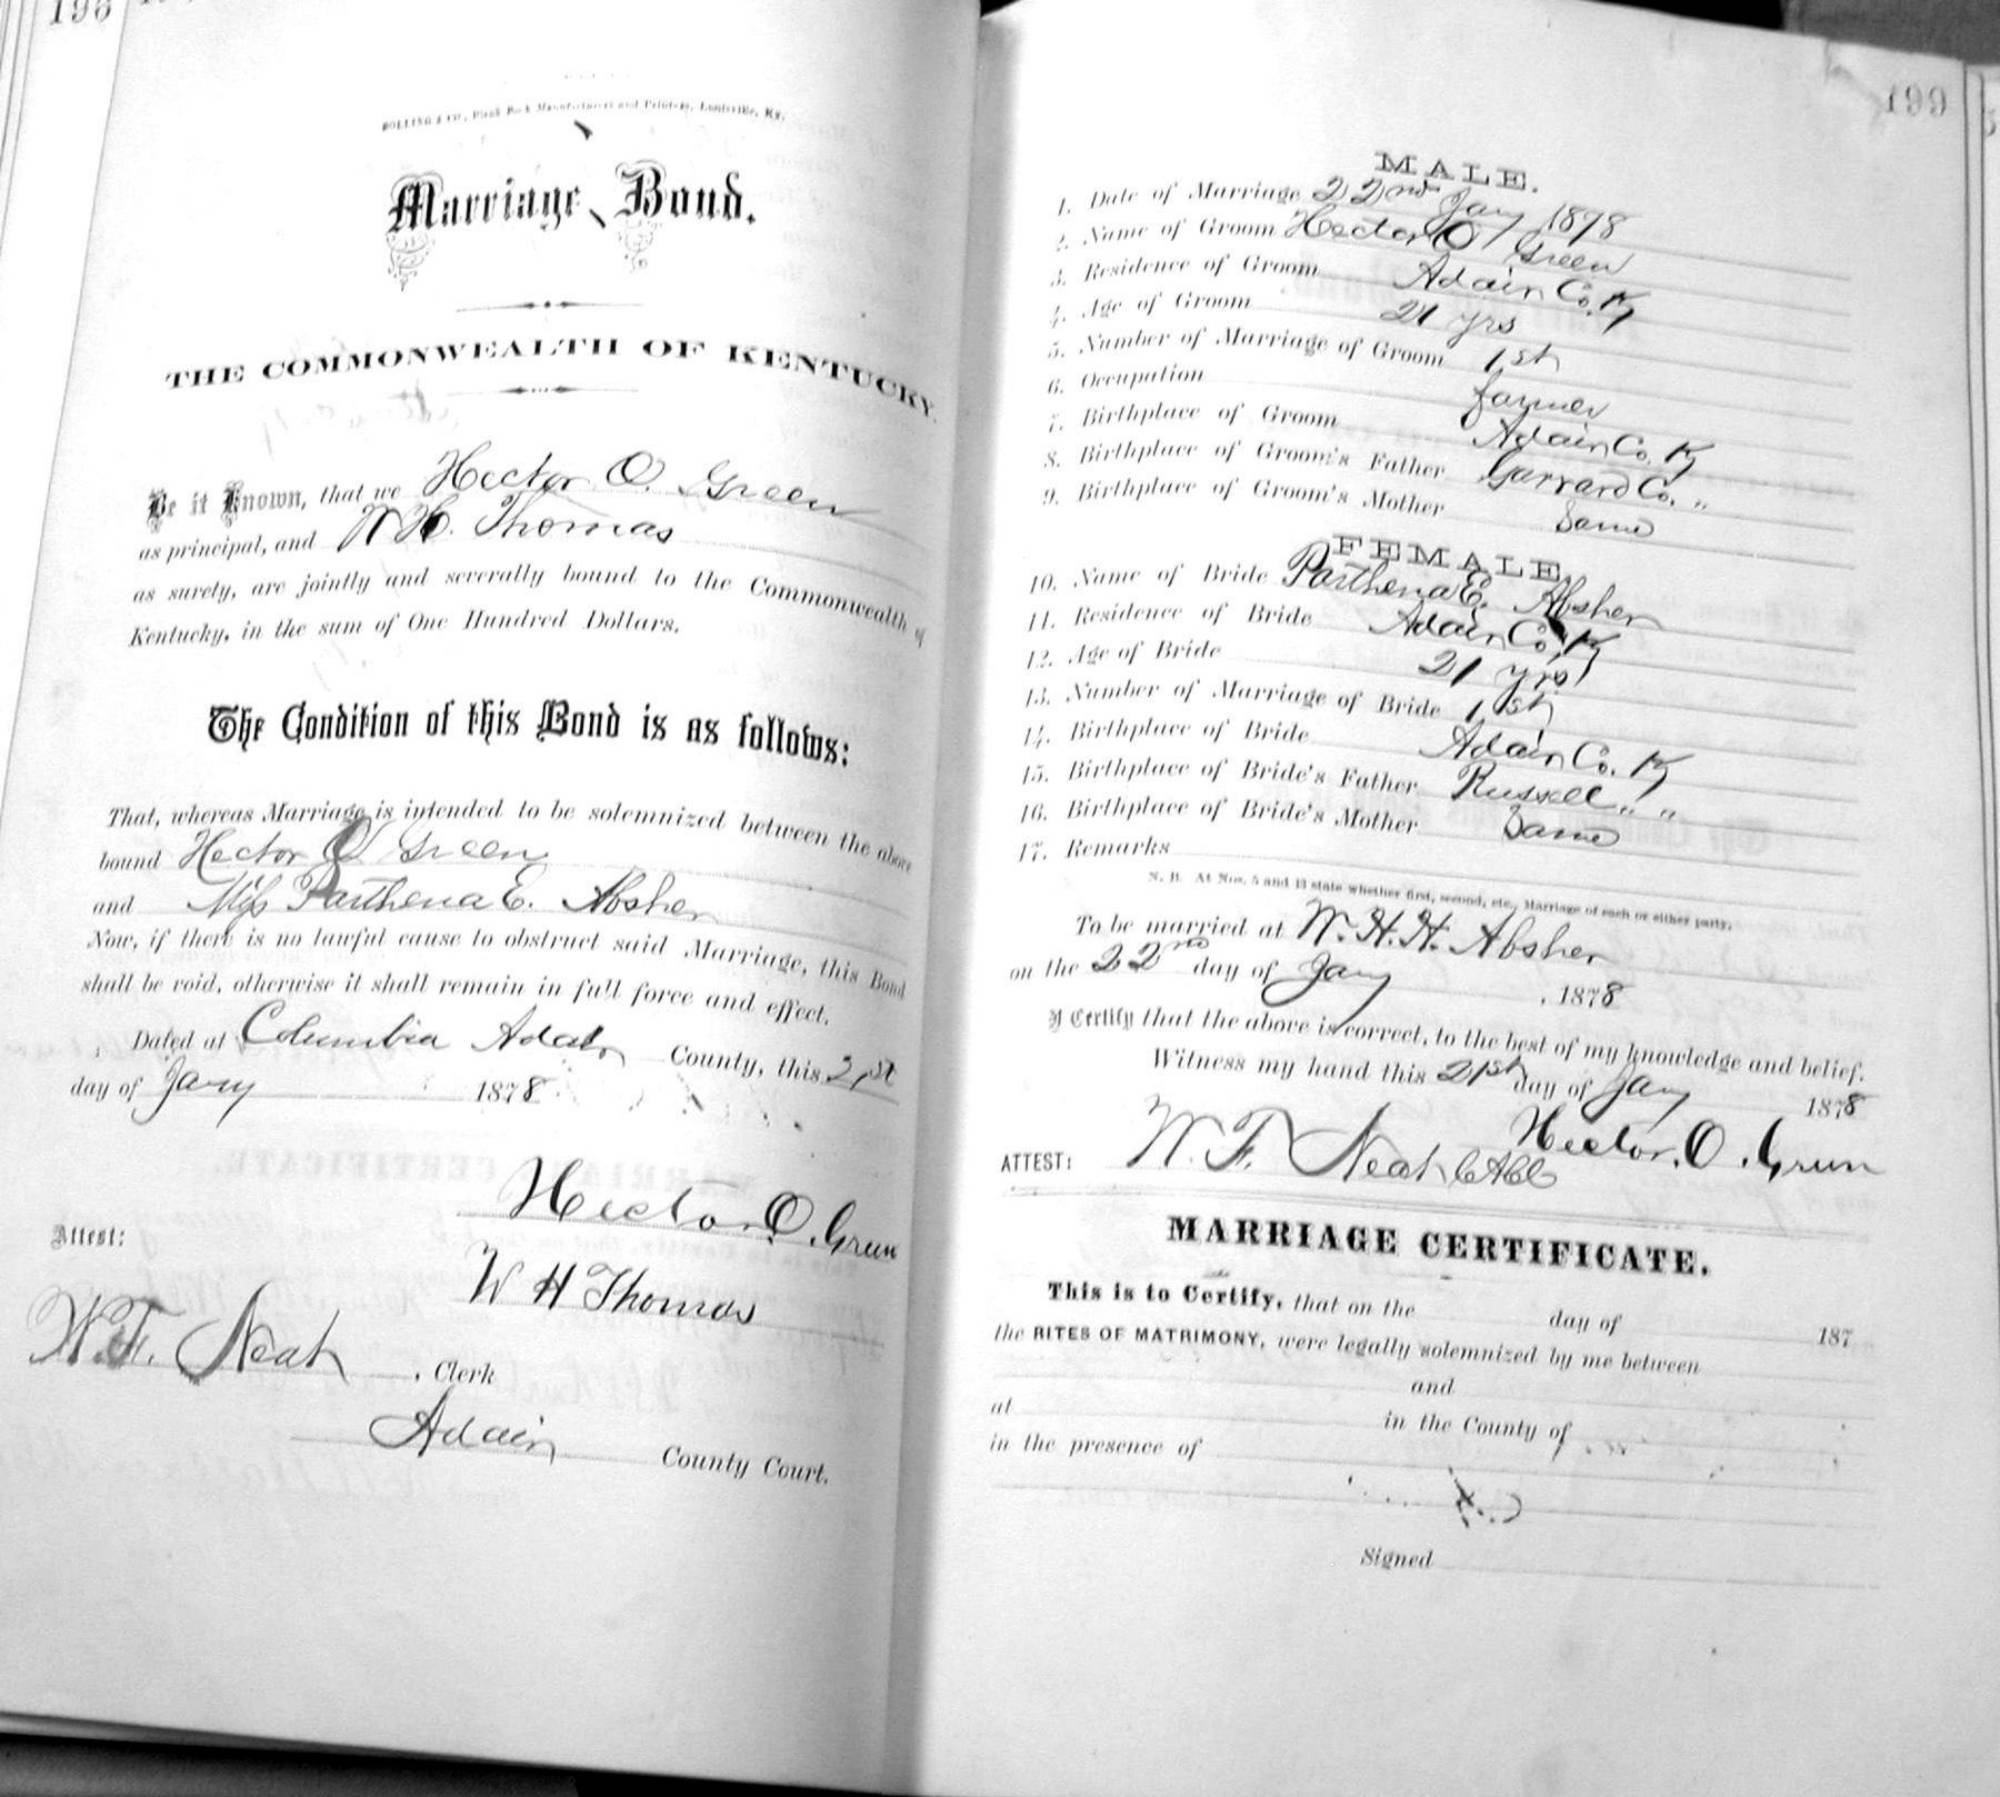 198
BOLLING & CO., Blank Book Manufacturers and Printers, Louisville, Ky.
Marriage Bond.
THE COMMONWEALTH OF KENTUCKY.
Be it Known, that we Hector O. Green
as principal, and W H. Thomas
as surety, are jointly and severally bound to the Commonwealth of
Kentucky, in the sum of One Hundred Dollars.
The Condition of this Bond is as follows:
That, whereas Marriage is intended to be solemnized between the above
bound Hector O Green
and Miss Parthena E. Absher
Now, if there is no lawful cause to obstruct said Marriage, this Bond
shall be void, otherwise it shall remain in full force and effect.
Dated at Columbia Adair County, this 21st
day of Jany 1878
Hector O. Green
Attest:
W H Thomas
W.F. Neat, Clerk
Adair County Court.
199
MALE.
1. Date of Marriage 22nd Jany 1878
2. Name of Groom Hector O Green
3. Residence of Groom Adair Co. Ky
4. Age of Groom 21 yrs
5. Number of Marriage of Groom 1st
6. Occupation farmer
7. Birthplace of Groom Adair Co. Ky
8. Birthplace of Groom's Father Garrard Co. "
9. Birthplace of Groom's Mother Same
FEMALE.
10. Name of Bride Parthena E. Absher
11. Residence of Bride Adair Co. Ky
12. Age of Bride 21 yrs
13. Number of Marriage of Bride 1st
14. Birthplace of Bride Adair Co. Ky
15. Birthplace of Bride's Father Russell " "
16. Birthplace of Bride's Mother Same
17. Remarks
N. B. At Nos. 5 and 13 state whether first, second, etc., Marriage of each or either party.
To be married at W. H. H. Absher
on the 22nd day of Jany, 1878
I Certify that the above is correct, to the best of my knowledge and belief.
Witness my hand this 21st day of Jany 1878
Hector. O. Green
ATTEST: W. F. Neat
MARRIAGE CERTIFICATE.
This is to Certify, that on the day of 187
the RITES OF MATRIMONY, were legally solemnized by me between
and
at in the County of
in the presence of
Signed